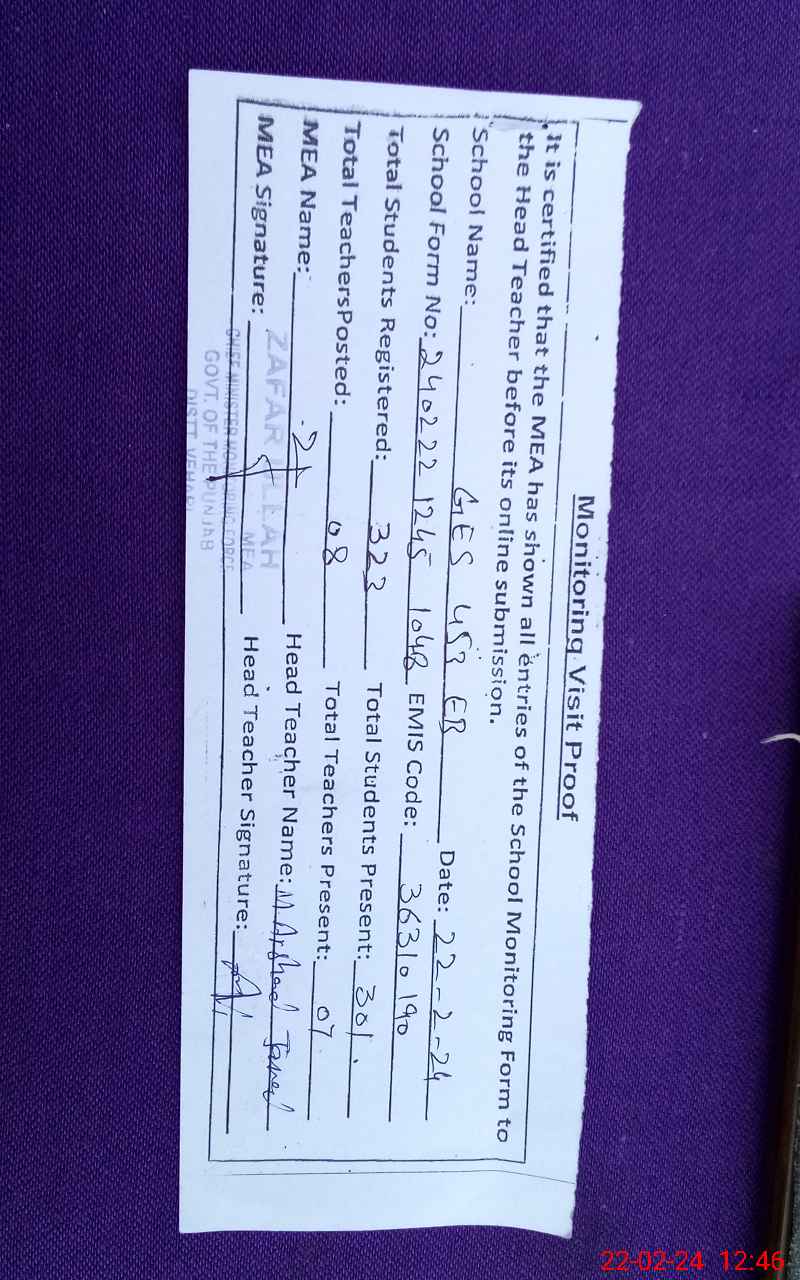 Monitoring Visit Proof
It is certified that the MEA has shown all entries of the School Monitoring Form to
the Head Teacher before its online submission.
School Name: GES 453 EB Date: 22-2-24
School Form No: 240222 1245 1048 EMIS Code: 36310190
Total Students Registered: 323 Total Students Present: 301
Total TeachersPosted: 08 Total Teachers Present: 07
MEA Name: ZAFAR ULLAH Head Teacher Name: M Arshad
MEA Signature: MEA Head Teacher Signature:
CHIEF MINISTER MONITORING FORCE
GOVT. OF THE PUNJAB
DISTT. VEHARI
22-02-24 12:46